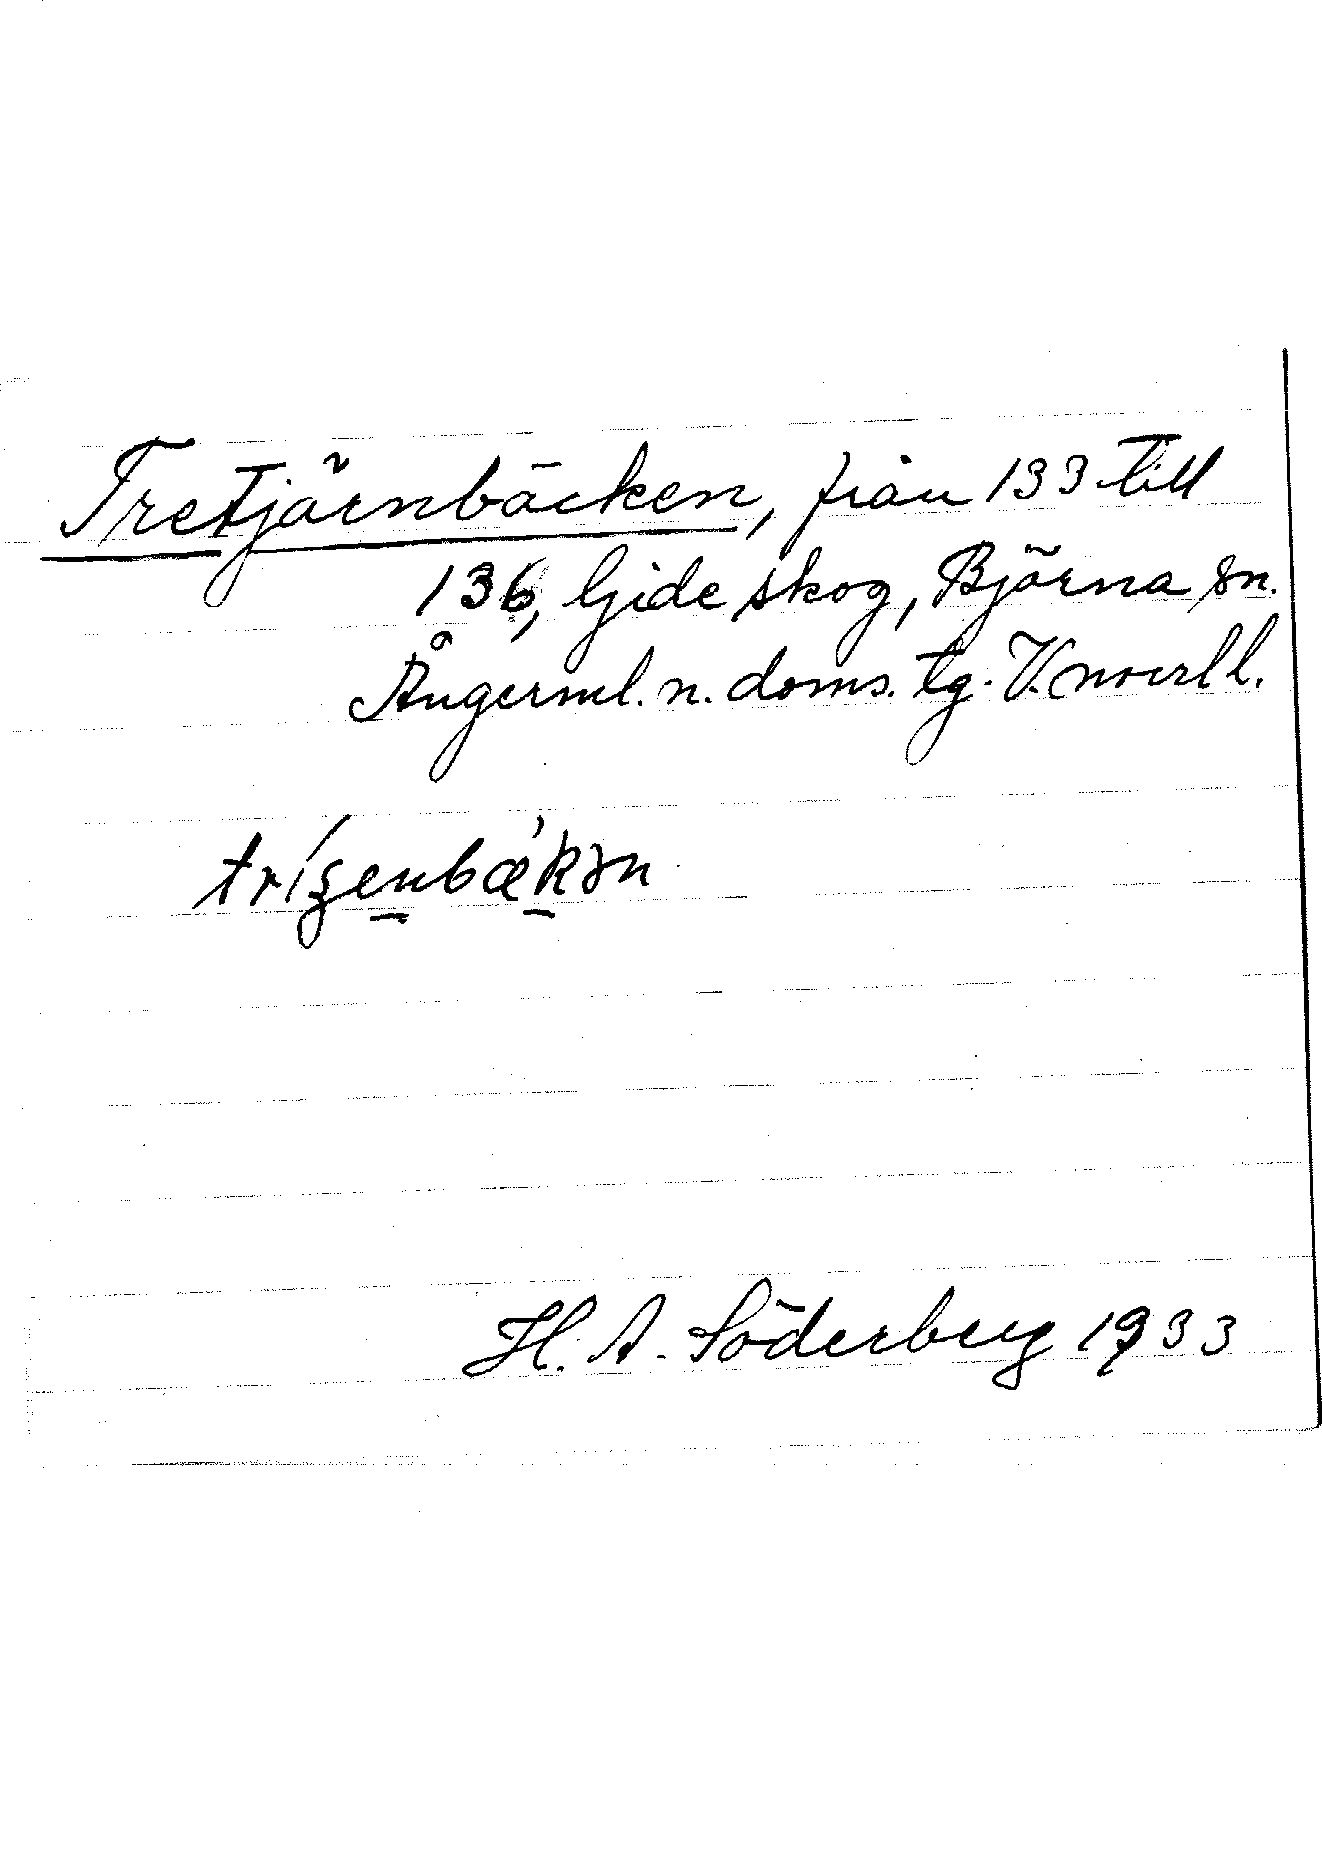 Tretjärnbäcken, från 133 till
136, Gide skog, Björna sn.
Ångerml. n. doms. tg. V. norrl l.
H. A. Söderberg 1933